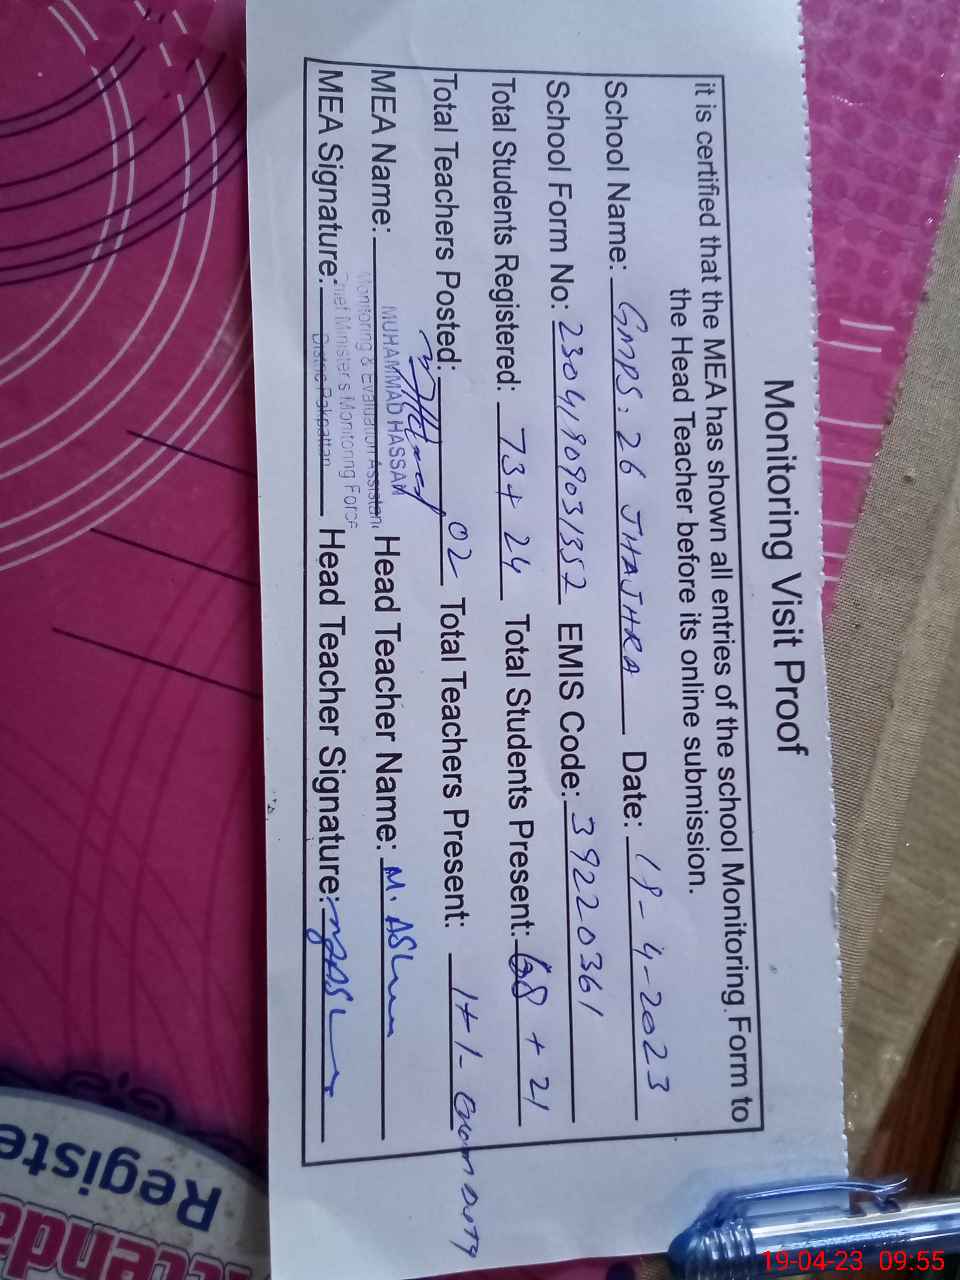 Monitoring Visit Proof
it is certified that the MEA has shown all entries of the school Monitoring Form to
the Head Teacher before its online submission.
School Name: GMPS. 26 JHAJHRA Date: 19-4-2023
School Form No: 23041909031352 EMIS Code: 39220361
Total Students Registered: 73 + 24 Total Students Present: 68 + 21
Total Teachers Posted: 02 Total Teachers Present: 1+1- Exam Duty
MEA Name: Head Teacher Name: M. ASh
MUHAMMAD HASSAN
Monitoring & Evaluation Assistant
Chief Minister's Monitoring Force
District Pakpattan
MEA Signature: Head Teacher Signature:
Registe
ttenda
19-04-23 09:55